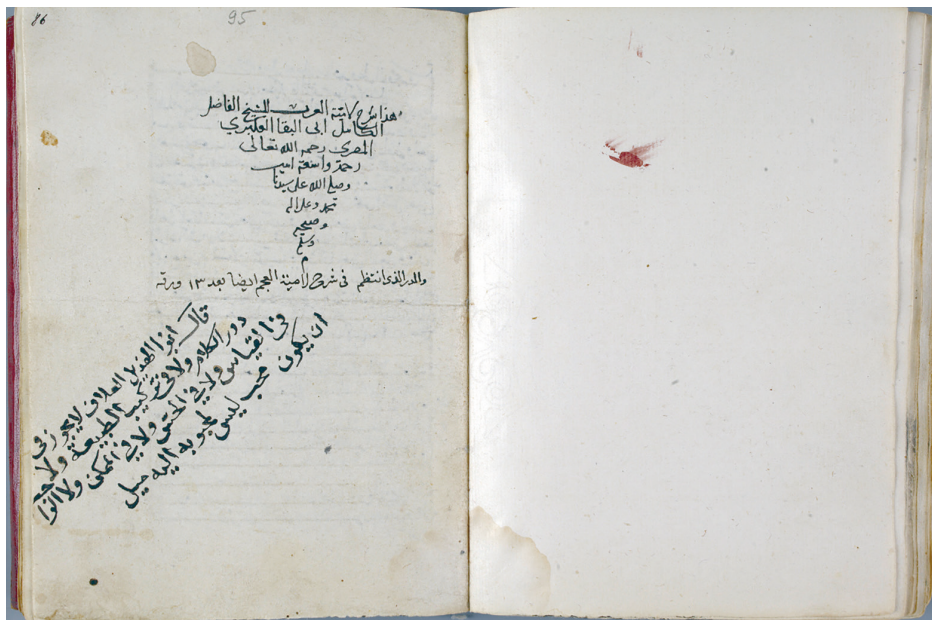 86
95
هذا شرح لامية العرب للشيخ الفاضل
الكامل ابى البقا العكبري
المصرى رحمه الله تعالى
رحمة واسعة امين
وصلى الله على سيدنا
محمد وعلى اله
وصحبه
وسلم
م
والدر الذى انتظم فى شرح لامية العجم ايضا بعد ١٣ ورقه
قال ابوا الهذيل العلاف لا يجوز فى
دور الكلام ولا فى تركيب الطبيعة ولا
فى القياس ولا فى الحس ولا فى الممكن ولا
ان يكون محب ليس لمحبوبه اليه ميل